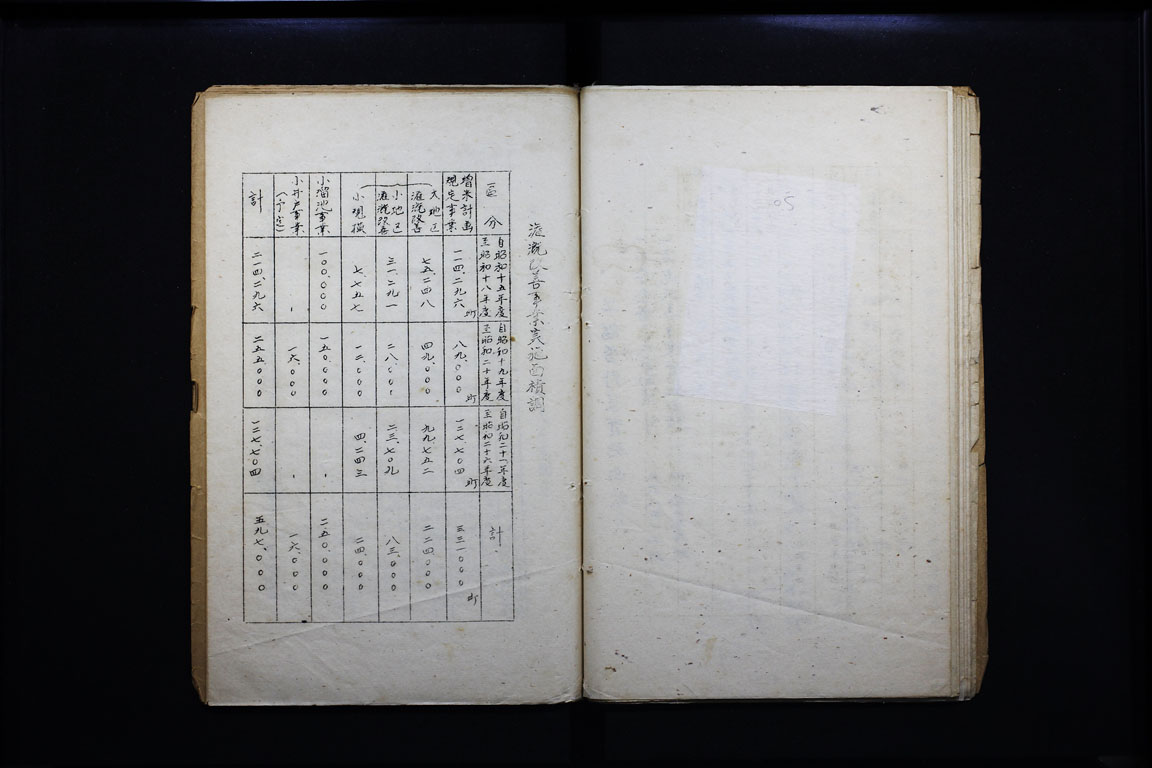 灌漑改善事業実施面積調
區分
自昭和十五年度
至昭和十八年度
自昭和十九年度
至昭和二十年度
自昭和二十一年度
至昭和二十六年度
計
増米計画
規定事業
一一四、二九六町
八九、〇〇〇町
一二七、七〇四町
三三一、〇〇〇町
大地区
灌漑改善
七五、二四八
四九、〇〇〇
九九、七五二
二二四、〇〇〇
小地区
灌漑改善
三一、二九一
二八、〇〇〇
二三、七〇九
八三、〇〇〇
小規模
七、七五七
一二、〇〇〇
四、二四三
二四、〇〇〇
小溜池事業
一〇〇、〇〇〇
一五〇、〇〇〇
、
二五〇、〇〇〇
小井戸事業
(予定)
、
一六、〇〇〇
、
一六、〇〇〇
計
二一四、二九六
二五五、〇〇〇
一二七、七〇四
五九七、〇〇〇